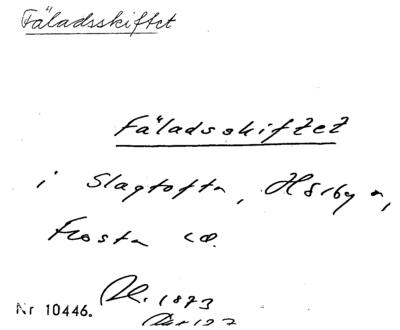 Fäladsskiftet
Fäladsskiftet
i Slagtofta, Hörby s,
Frosta
Nr 10446. 1873